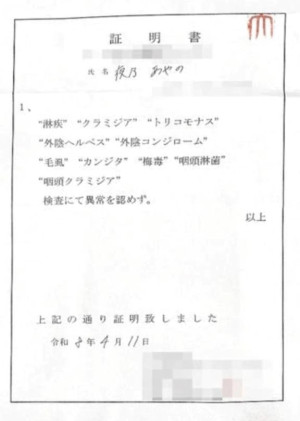 証明書
氏名 優乃 あやの
1、
“淋疾” “クラミジア” “トリコモナス”
“外陰ヘルペス” “外陰コンジローム”
“毛虱” “カンジタ” “梅毒” “咽頭淋菌”
“咽頭クラミジア”
検査にて異常を認めず。
以上
上記の通り証明致しました
令和 8年 4月 11日